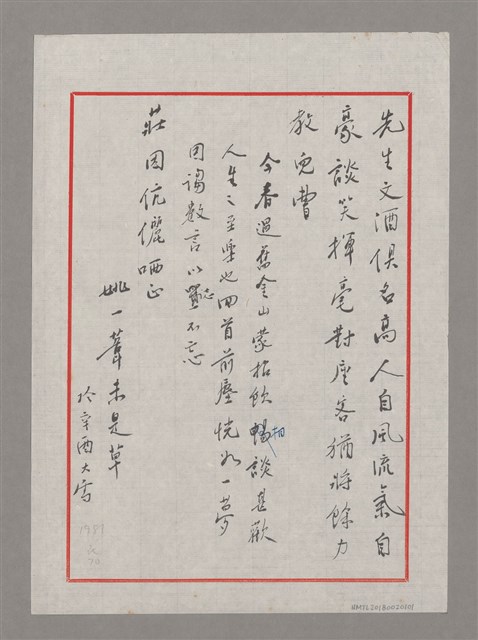 先生文酒俱名高人自風流氣自
豪談笑揮毫對座客猶將餘力
教兒曹
今春過舊金山蒙招飲相暢談甚歡
人生之至樂也回首前塵恍如一夢
因謅數言以誌不忘
莊因伉儷哂正
姚一葦未是草
於辛酉大雪
1981
NMTL20180020101